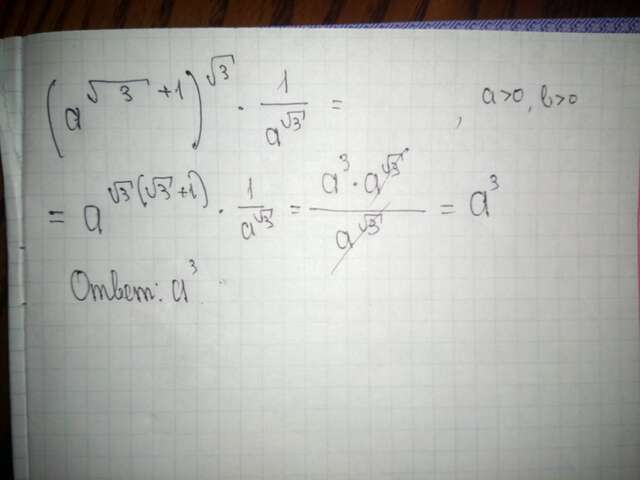 (a^{√3 +1})^{√3} · 1/a^{√3} = , a>0, b>0
= a^{√3(√3+1)} · 1/a^{√3} = a^3 · a^{√3}/a^{√3} = a^3
Ответ: a^3.